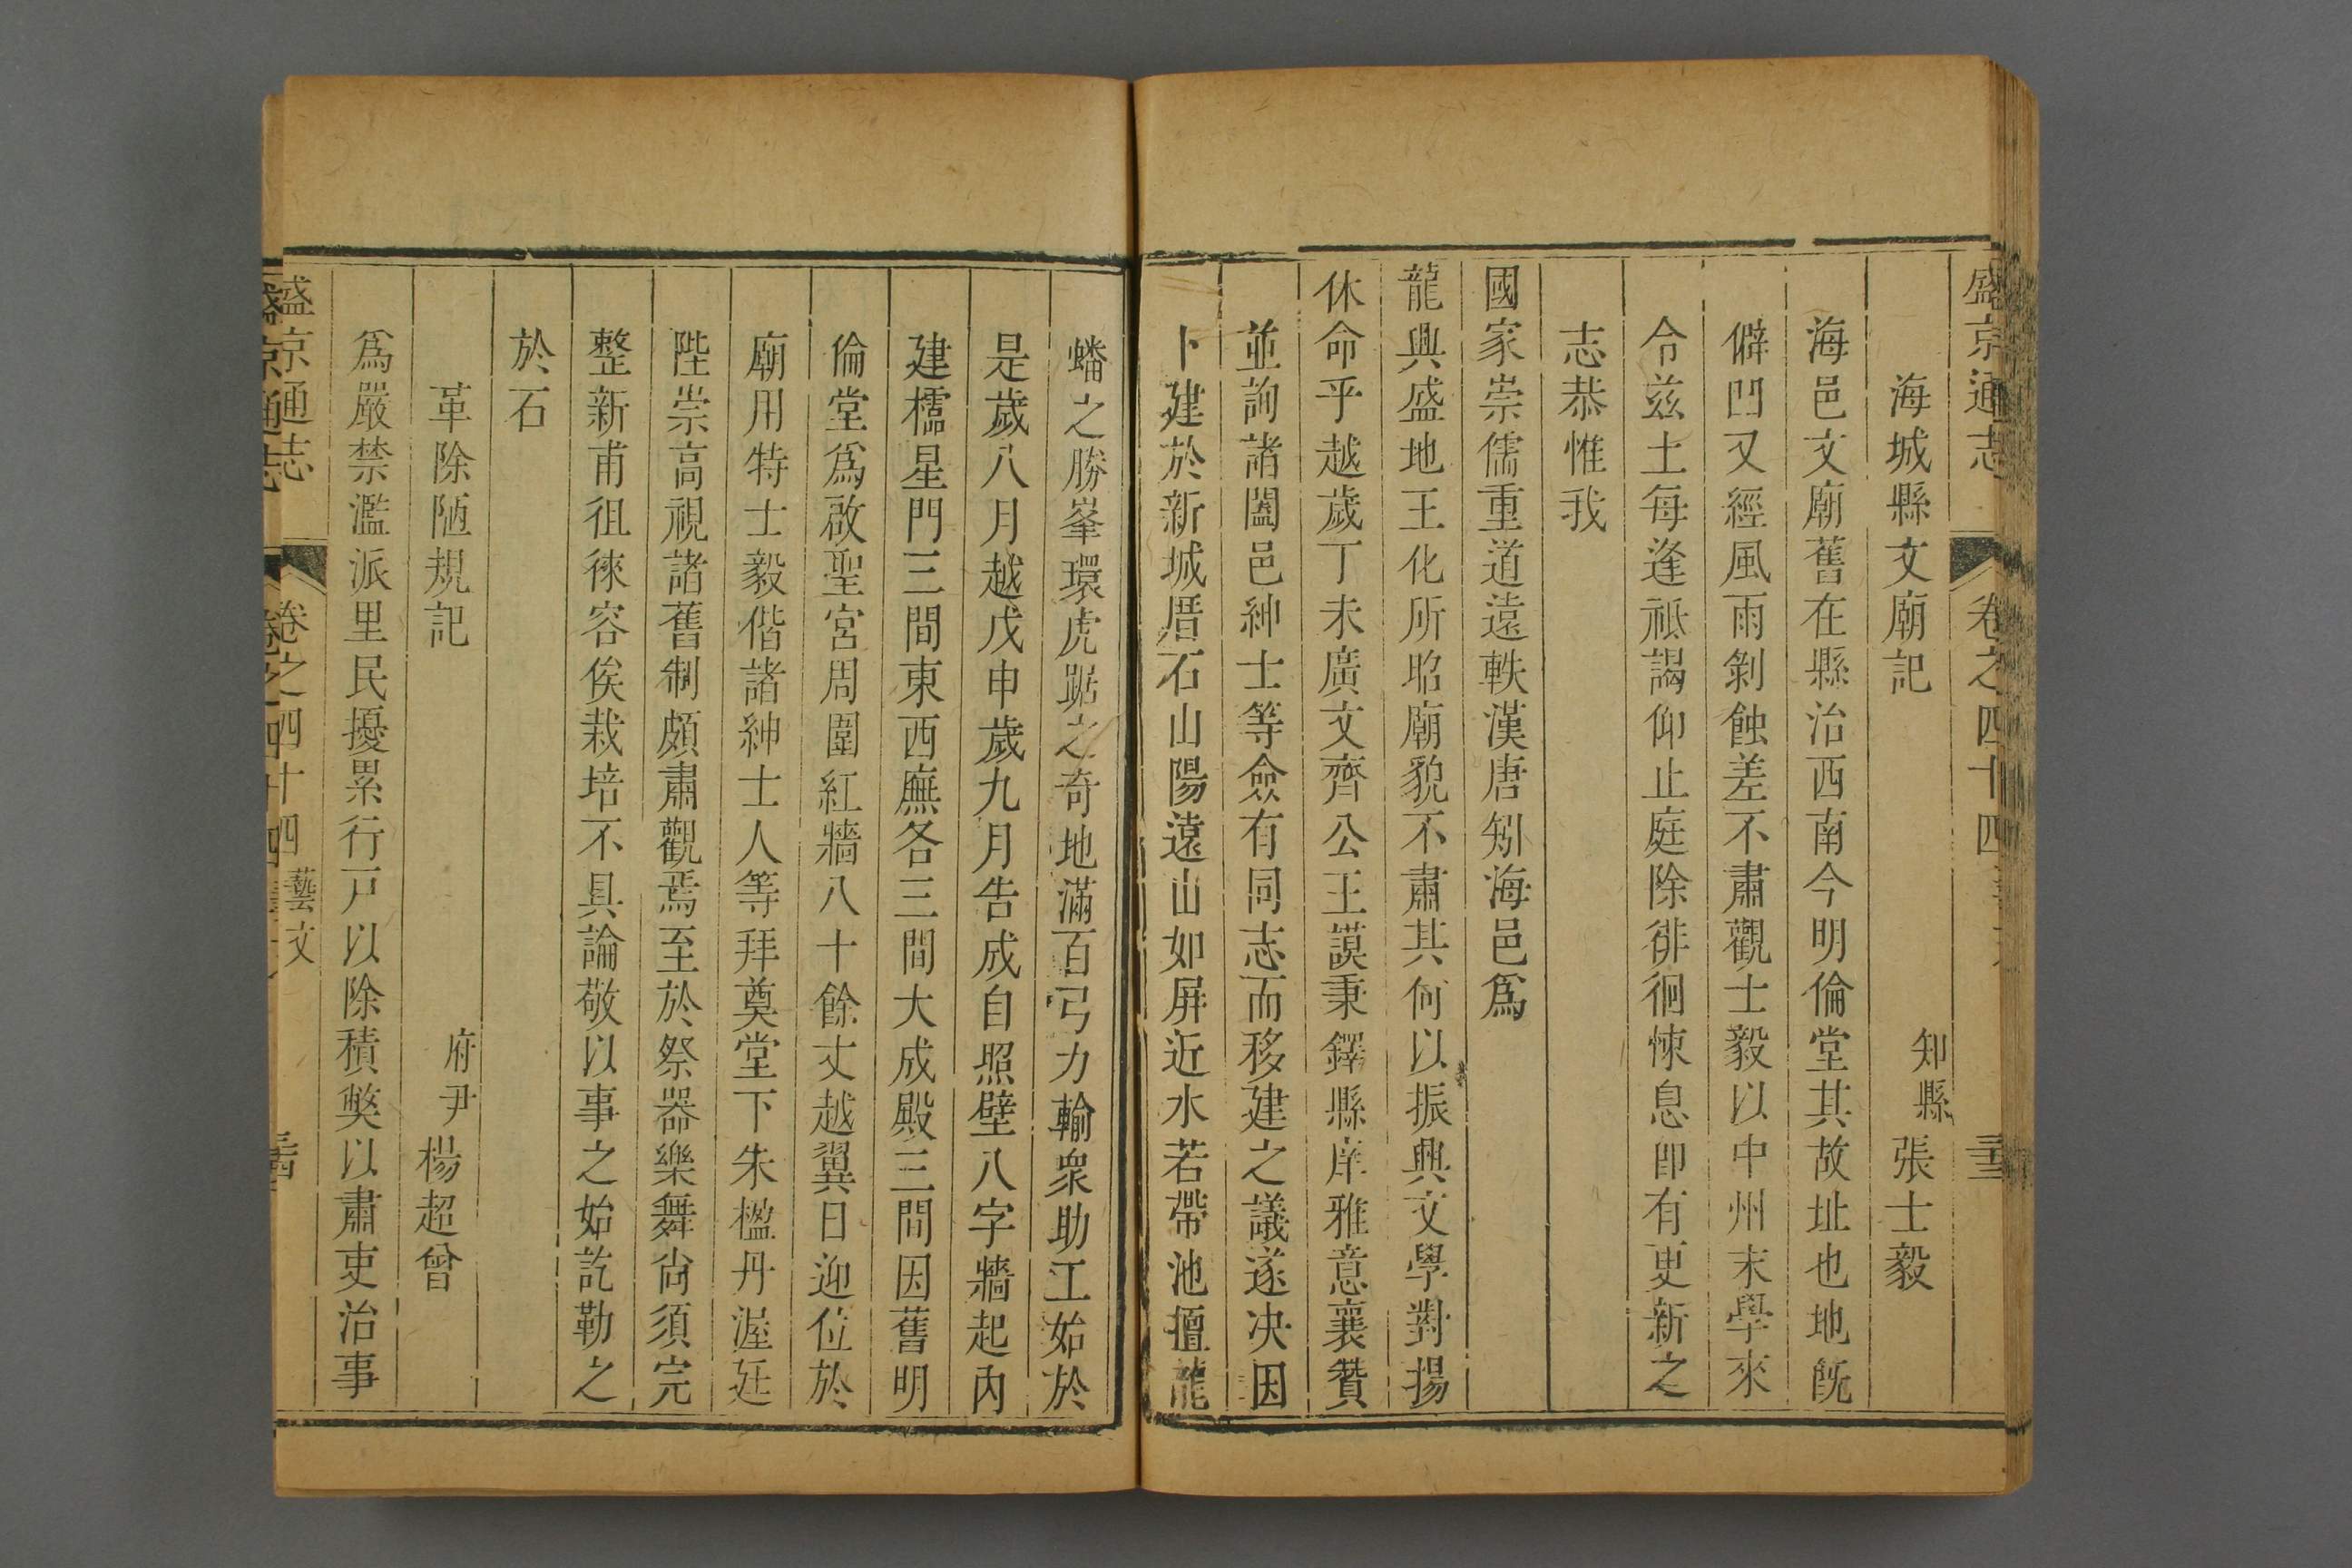 盛京通志 卷之四十四
海城縣文廟記 知縣張士毅
海邑文廟舊在縣治西南今明倫堂其故址也地旣
僻凹又經風雨剝蝕差不肅觀士毅以中州末學來
令兹土每逢祗謁仰止庭除徘徊悚息卽有更新之
志恭惟我
國家崇儒重道遠軼漢唐矧海邑爲
龍興盛地王化所昭廟貌不肅其何以振興文學對揚
休命乎越歲丁未廣文齊公王謨秉鐸縣庠雅意襄贊
並詢諸闔邑紳士等僉有同志而移建之議遂决因
卜建於新城厝石山陽遠山如屏近水若帶池擅龍
蟠之勝峯環虎踞之奇地滿百弓力輸衆助工始於
是歲八月越戊申歲九月告成自照壁八字牆起內
建櫺星門三間東西廡各三間大成殿三間因舊明
倫堂爲啟聖宮周圍紅牆八十餘丈越翼日迎位於
廟用特士毅偕諸紳士人等拜奠堂下朱楹丹渥廷
陛崇高視諸舊制頗肅觀焉至於祭器樂舞尙須完
整新甫徂徠容俟栽培不具論敬以事之始訖勒之
於石
革除陋規記 府尹楊超曾
爲嚴禁濫派里民擾累行戸以除積獘以肅吏治事
盛京通志 卷之四十四 藝文